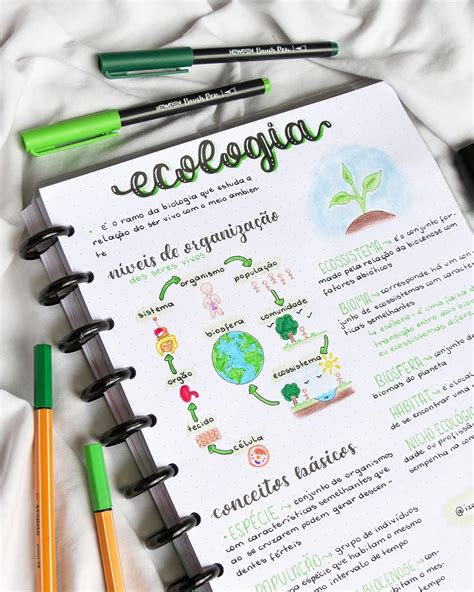 NEWPEN Brush Pen
NEWPEN Brush Pen
ecologia
• é o ramo da biologia que estuda a
relação do ser vivo com o meio ambien
te
níveis de organização
dos seres vivos
sistema
organismo
população
comunidade
biosfera
ecossistema
órgão
tecido
célula
ECOSSISTEMA → é o conjunto for-
mado pela relação da biocenose com
fatores abióticos
BIOMA → corresponde há um con-
junto de ecossistemas com caracterís
ticas semelhantes
↳ ecótono: é uma faixa
transição entre dois
ou ecossistemas difer
BIOSFERA → conjunto
biomas do planeta
HABITAT → é o local
de se encontrar uma
NICHO ECOLÓGICO
dade ou profiss
sempenha na com
conceitos básicos
• ESPÉCIE → conjunto de organismos
com características semelhantes que
ao se cruzarem podem gerar descen -
dentes férteis
POPULAÇÃO → grupo de indivíduos
espécie que habitam o mesm
intervalo de tempo
BIOCENOSE
@iza